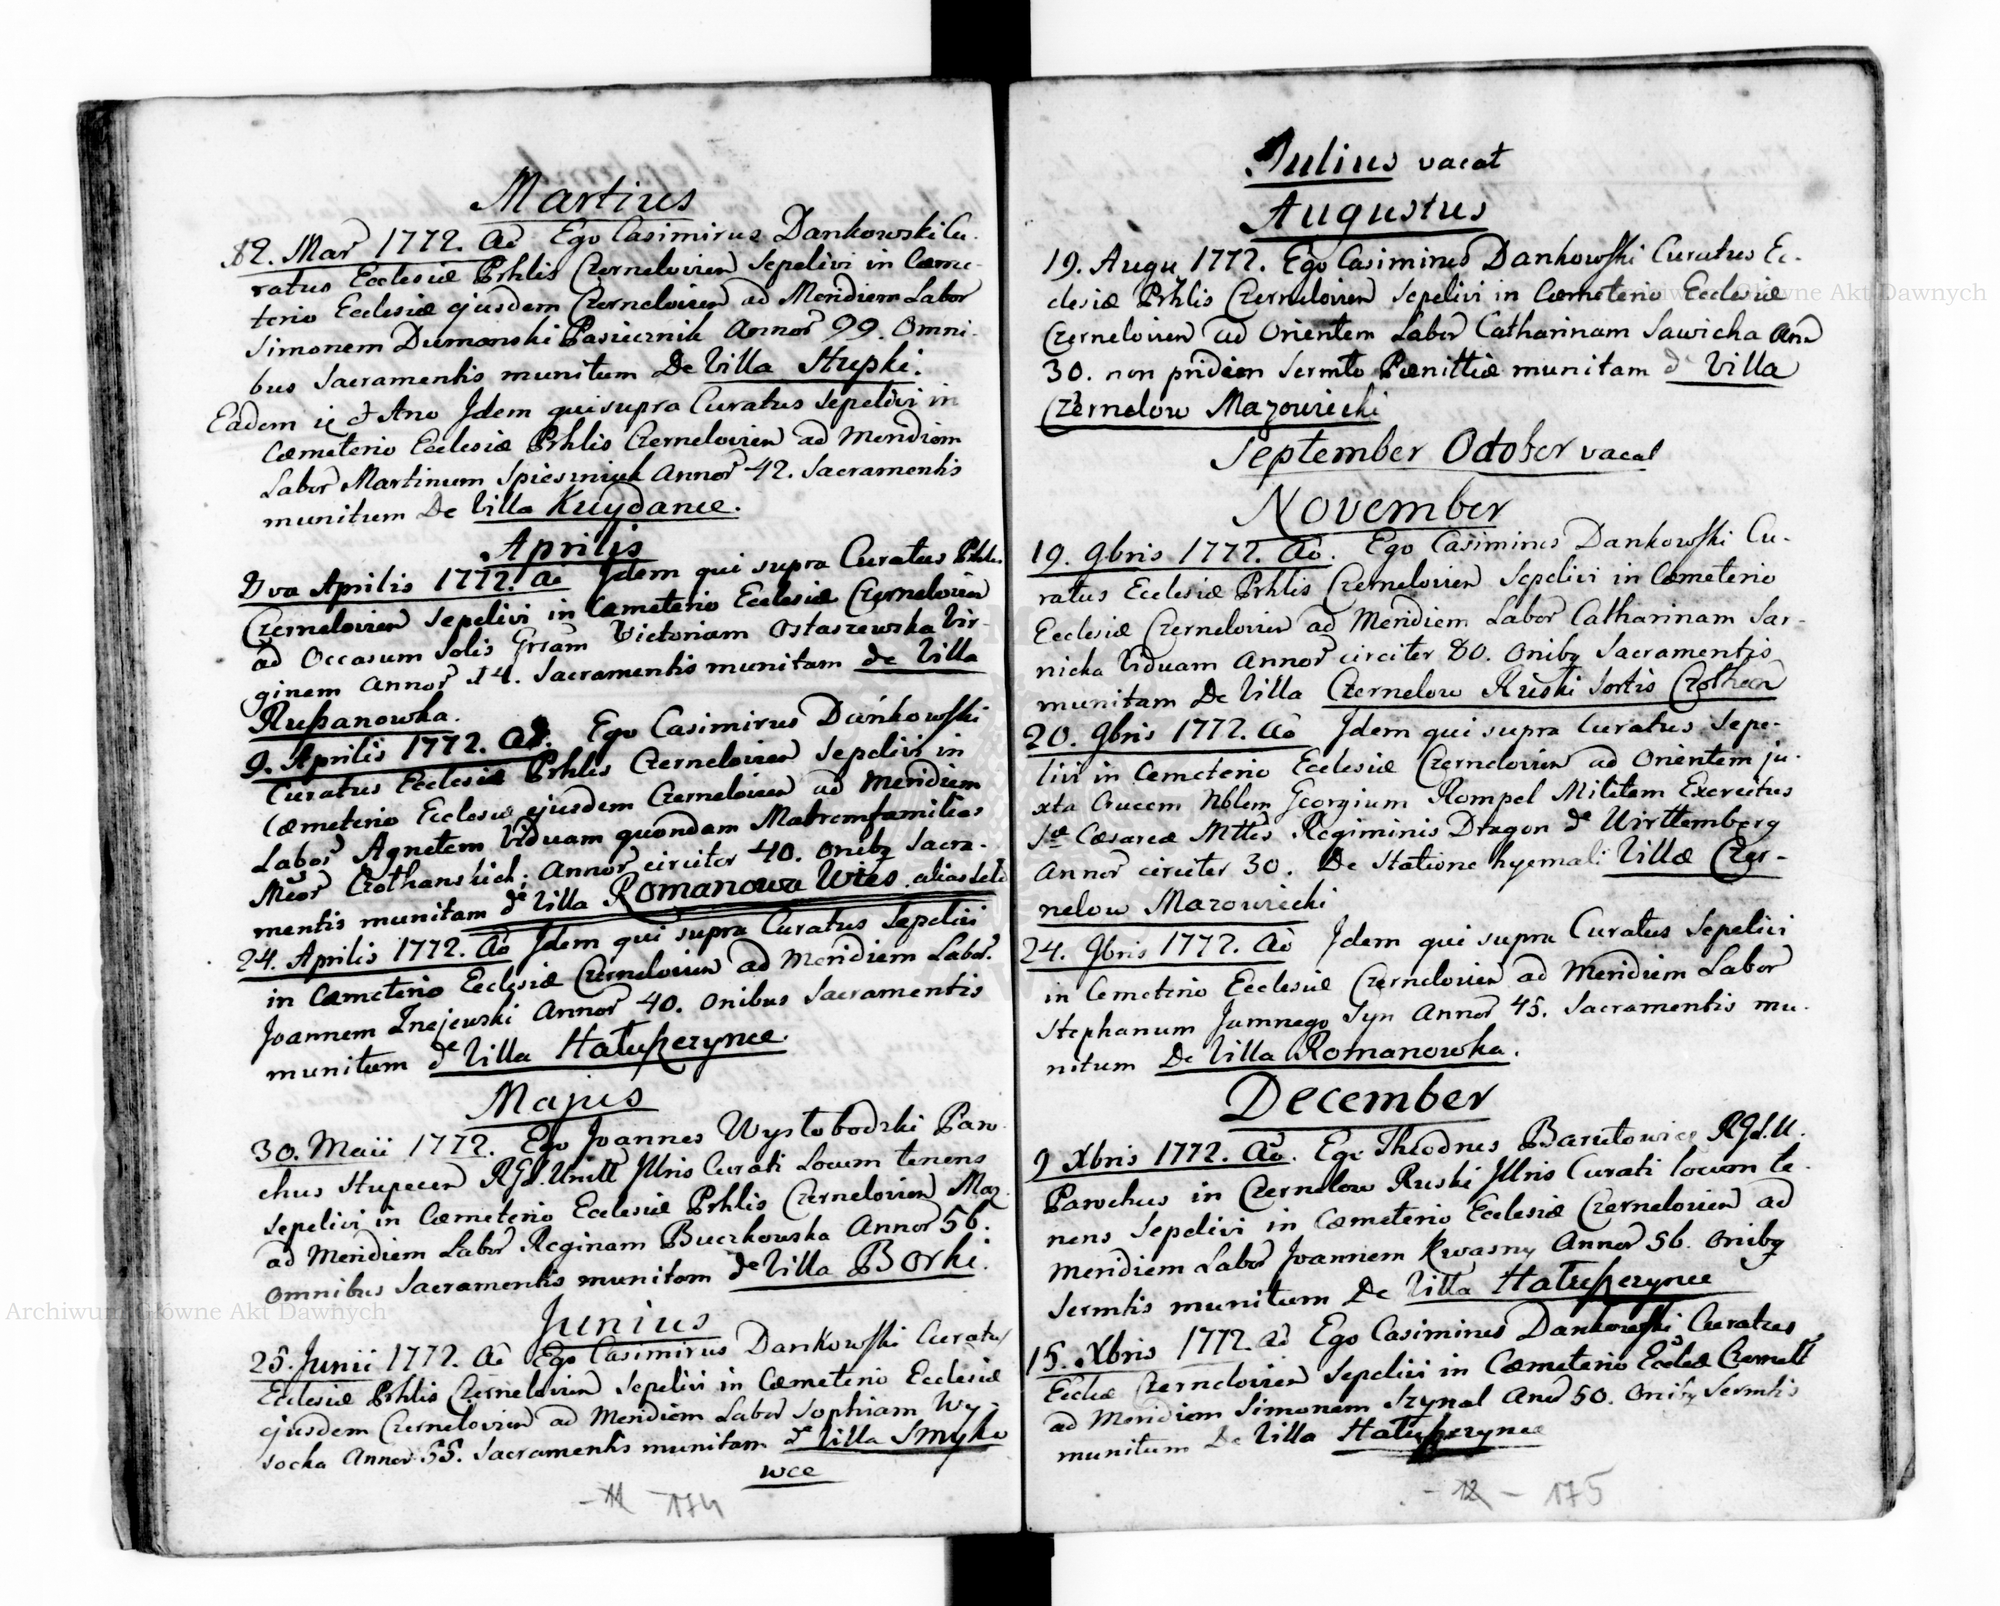 Martius
12. Mar 1772. Ao Ego Casimirus Dankowski Cu-
ratus Ecclesiæ Prhlis Czernelovien Sepelivi in Cæme-
terio Ecclesiæ ejusdem Czernelovien ad Meridiem Labor
Simonem Dumanski Pasiecznik Annor 99. Omni-
bus Sacramentis munitum De Villa Stupki.
Eadem et Ano Idem qui supra Curatus Sepelivi in
Cæmeterio Ecclesiæ Prhlis Czernelovien ad Meridiem
Labor Martinum Spieszniuk Annor 42. Sacramentis
munitum De Villa Kuydance.
Aprilis
2va Aprilis 1772. Ao Idem qui supra Curatus Prhlis
Czernelovien Sepelivi in Cæmeterio Ecclesiæ Czernelovien
ad Occasum Solis Grsam Victoriam Ostaszewska Vir-
ginem Annor 14. Sacramentis munitam de Villa
Rußanowka.
9. Aprilis 1772. Ao. Ego Casimirus Dańkowski
Curatus Ecclesiæ Prhlis Czernelovien Sepelivi in
Cæmeterio Ecclesiæ ejusdem Czernelovien ad Meridiem
Labor Agnetem Viduam quondam Matremfamilias
Annor circiter 40. Onibq Sacra-
mentis munitam de Villa Romanowa Wies alias
24. Aprilis 1772. Ao Idem qui supra Curatus Sepelivi
in Cæmeterio Ecclesiæ Czernelovien ad Meridiem Labor.
Joannem Annor 40. Onibus Sacramentis
munitum de Villa Hałußczynce.
Majus
30. Maii 1772. Ego Joannes Wysłobodzki Paro-
chus Stupecen Illris Curati Locum tenens
Sepelivi in Cæmeterio Ecclesiæ Prhlis Czernelovien Maz.
ad Meridiem Labor Reginam Buczkowska Annor 56.
Omnibus Sacramentis munitam de Villa Borki.
Junius
25. Junii 1772. Ao Ego Casimirus Dankowski Curatus
Ecclesiæ Prhlis Czernelovien Sepelivi in Cæmeterio Ecclesiæ
ejusdem Czernelovien ad Meridiem Labor Sophiam Wy-
socka Annor 55. Sacramentis munitam de Villa Smyko
wce
- 11 174
Julius vacat
Augustus
19. Augu 1772. Ego Casimirus Dankowski Curatus Ec-
clesiæ Prhlis Czernelovien Sepelivi in Cæmeterio Ecclesiæ
Czernelovien ad Orientem Labor Catharinam Sawicka Ann
30. non pridem Sermto Pænittiæ munitam de Villa
Czernelow Mazowiecki
September October vacat
November
19. 9bris 1772. Ao. Ego Casimirus Dankowski Cu-
ratus Ecclesiæ Prhlis Czernelovien Sepelivi in Cæmeterio
Ecclesiæ Czernelovien ad Meridiem Labor Catharinam Sar-
nicka Viduam Annor circiter 80. Onibq Sacramentis
munitam De Villa Czernelow Ruski Sortis
20. 9bris 1772. Ao Idem qui supra Curatus Sepe-
livi in Cemeterio Ecclesiæ Czernelovien ad Orientem ju-
xta Crucem Nblem Georgium Rompel Militem Exercitus
Sæ Cæsareæ Mttis Regiminis Dragon de Wirttemberg
Annor circiter 30. De Statione hyemali Villæ Czer-
nelow Mazowiecki
24. 9bris 1772. Ao Idem qui supra Curatus Sepelivi
in Cemeterio Ecclesiæ Czernelovien ad Meridiem Labor
Stephanum Jamnego Syn Annor 45. Sacramentis mu-
nitum De Villa Romanowka.
December
9 Xbris 1772. Ao. Ego Theodrus Barutowicz
Parochus in Czernelow Ruski Illris Curati locum te-
nens Sepelivi in Cæmeterio Ecclesiæ Czernelovien ad
Meridiem Labor Joannem Kwasny Annor 56. Onibq
Sermtis munitum De Villa Hałußczynce
15. Xbris 1772 Ao Ego Casimirus Dankowski Curatus
Eccleæ Czernelovien Sepelivi in Cæmeterio Eccleæ Czernell
ad Meridiem Simonem Szynal Anor 50. Onibq Sermtis
munitum De Villa Hałußczynce
- 12 - 175
Archiwum Główne Akt Dawnych
Archiwum Główne Akt Dawnych